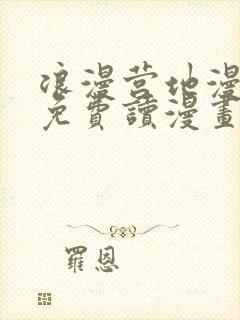 浪漫营地漫
免費讀漫畫
羅恩